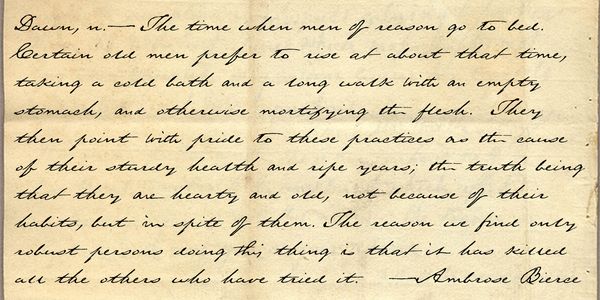 Dawn, n.— The time when men of reason go to bed.
Certain old men prefer to rise at about that time,
taking a cold bath and a long walk with an empty
stomach, and otherwise mortifying the flesh. They
then point with pride to these practices as the cause
of their sturdy health and ripe years; the truth being
that they are hearty and old, not because of their
habits, but in spite of them. The reason we find only
robust persons doing this thing is that it has killed
all the others who have tried it. —Ambrose Bierce